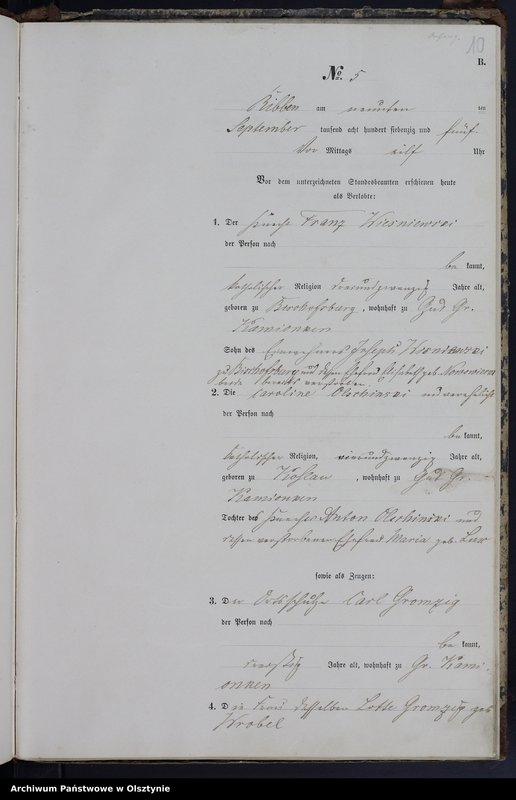 10
B.
No. 5
Ribben am neunten ten
September tausend acht hundert siebenzig und fünf
Vor Mittags eilf Uhr
Vor dem unterzeichneten Standesbeamten erschienen heute
als Verlobte:
1. Der Franz Wiesniewski
der Person nach
be kannt,
katholischer Religion dreiundzwanzig Jahre alt,
geboren zu Bischofsburg, wohnhaft zu Gut Gr.
Kamionken
Sohn des Joseph
zu Bischofsburg und dessen Ehefrau Elisabeth geb.
beide bereits verstorben.
2. Die Caroline Olschinski
der Person nach
be kannt,
katholischer Religion, vierundzwanzig Jahre alt,
geboren zu Koslau, wohnhaft zu Gut Gr.
Kamionken
Tochter des Anton Olschinski und
dessen verstorbenen Ehefrau Maria geb.
sowie als Zeugen:
3. Der Ortsschulze Carl Gromzig
der Person nach
be kannt,
dreißig Jahre alt, wohnhaft zu Gr. Kami-
onken
4. Die Frau desselben Lotte Gromzig geb.
Wrobel
Archiwum Państwowe w Olsztynie